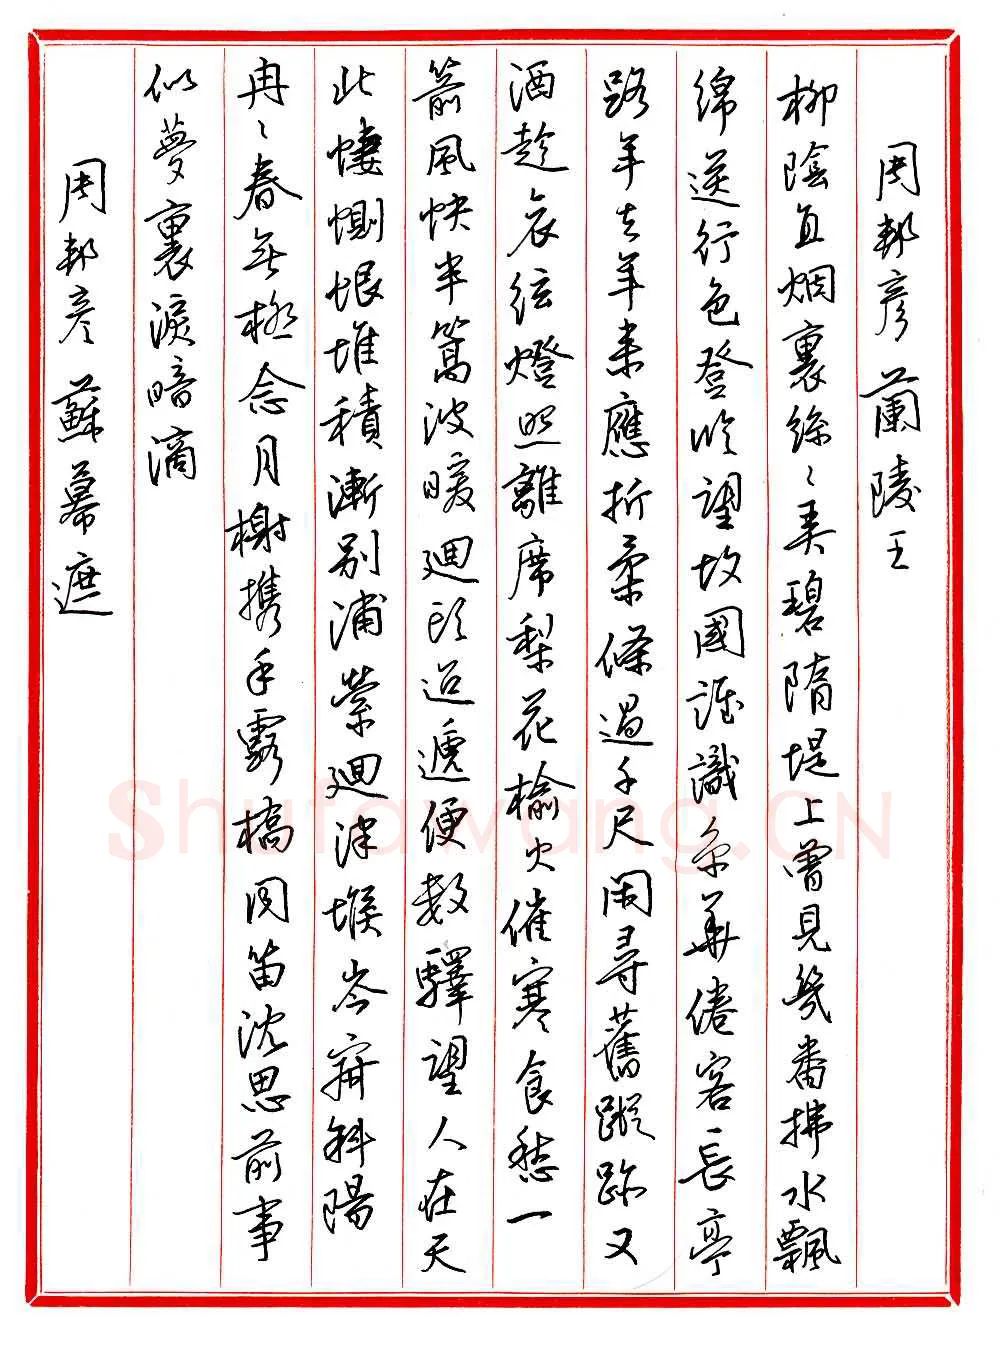 周邦彦 蘭陵王
柳陰直烟裏絲〻弄碧隋堤上曾見幾番拂水飄
綿送行色登臨望故國誰識京華倦客長亭
路年去年來應折柔條過千尺閑尋舊蹤跡又
酒趁哀弦燈照離席梨花榆火催寒食愁一
箭風快半篙波暖迴頭迢遞便數驛望人在天
北悽惻恨堆積漸別浦縈迴津堠岑寂斜陽
冉〻春無極念月榭携手露橋聞笛沈思前事
似夢裏淚暗滴
周邦彦 蘇幕遮
Shufawang.CN